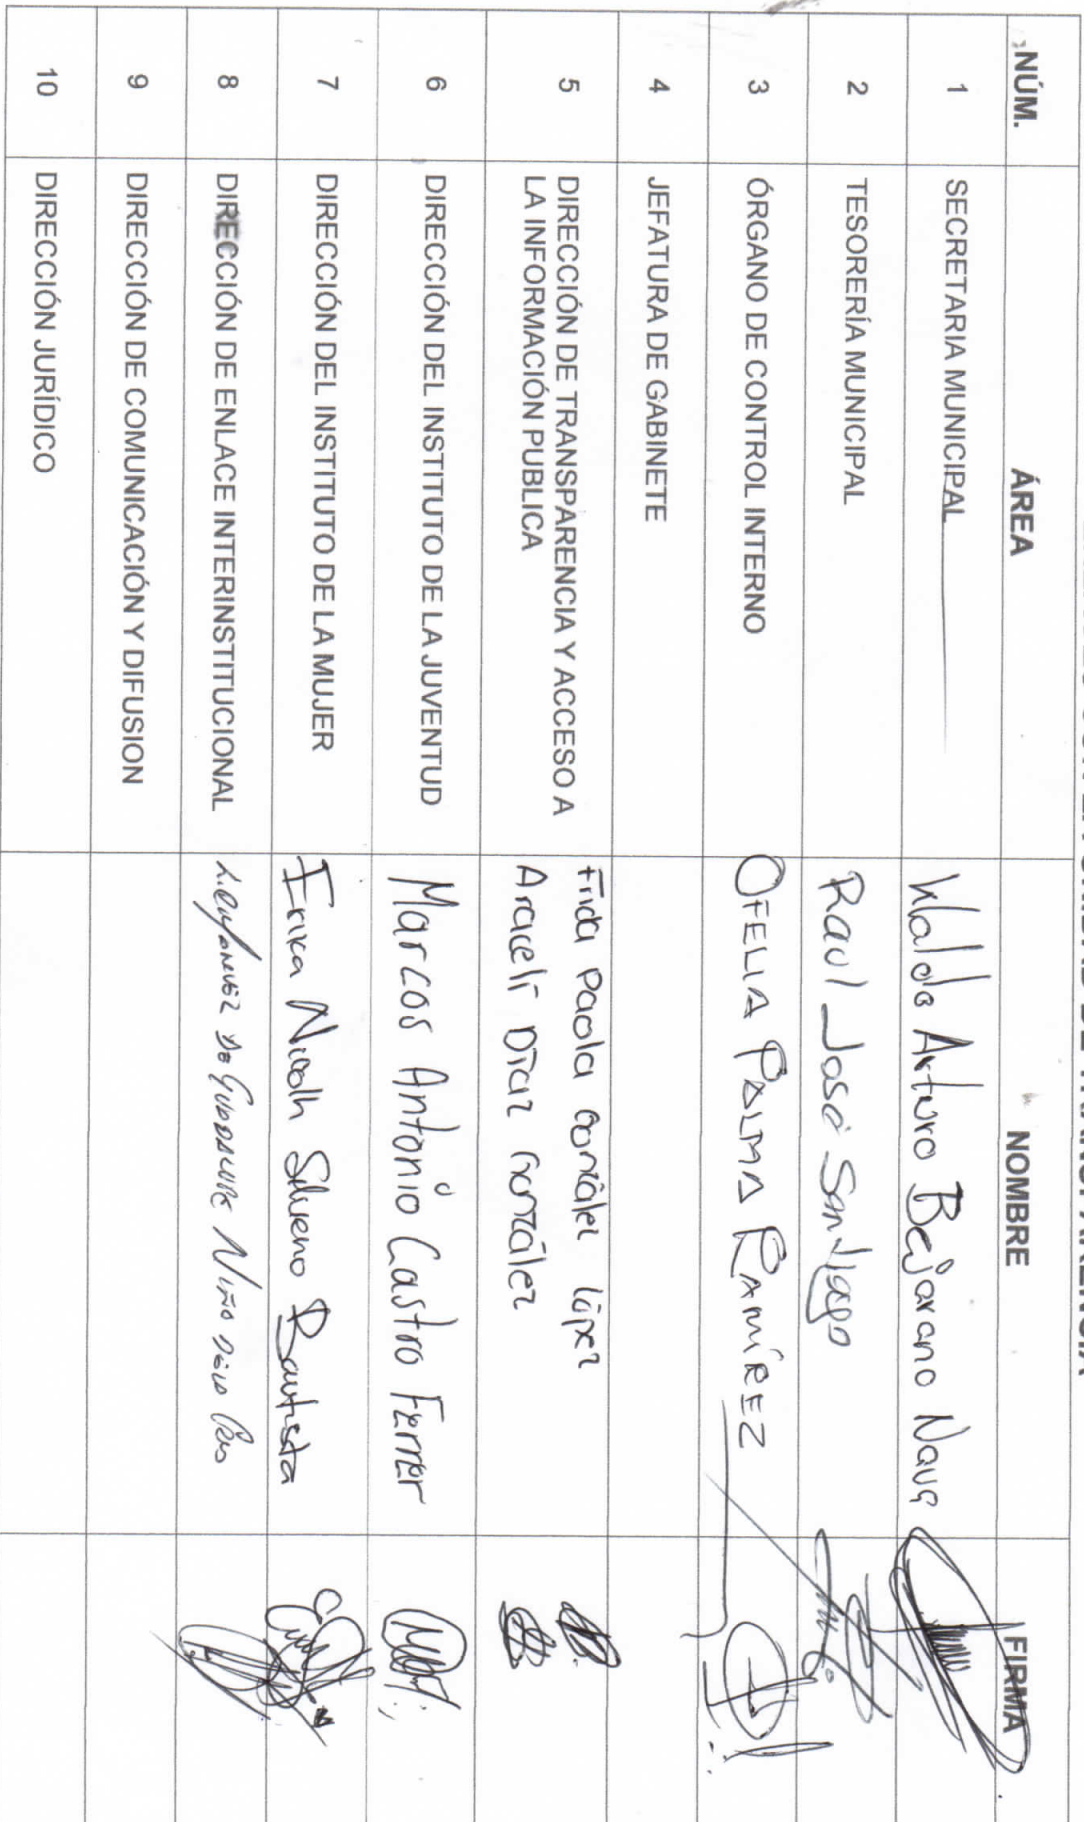 NÚM. ÁREA NOMBRE FIRMA
1 SECRETARIA MUNICIPAL Waldo Arturo Bejarano Nava
2 TESORERÍA MUNICIPAL Raul José Santiago
3 ÓRGANO DE CONTROL INTERNO OFELIA PALMA RAMÍREZ
4 JEFATURA DE GABINETE
5 DIRECCIÓN DE TRANSPARENCIA Y ACCESO A Frida Paola González López
LA INFORMACIÓN PUBLICA Araceli Díaz González
6 DIRECCIÓN DEL INSTITUTO DE LA JUVENTUD Marcos Antonio Castro Ferrer
7 DIRECCIÓN DEL INSTITUTO DE LA MUJER Erika Bautista
8 DIRECCIÓN DE ENLACE INTERINSTITUCIONAL
9 DIRECCIÓN DE COMUNICACIÓN Y DIFUSION
10 DIRECCIÓN JURÍDICO